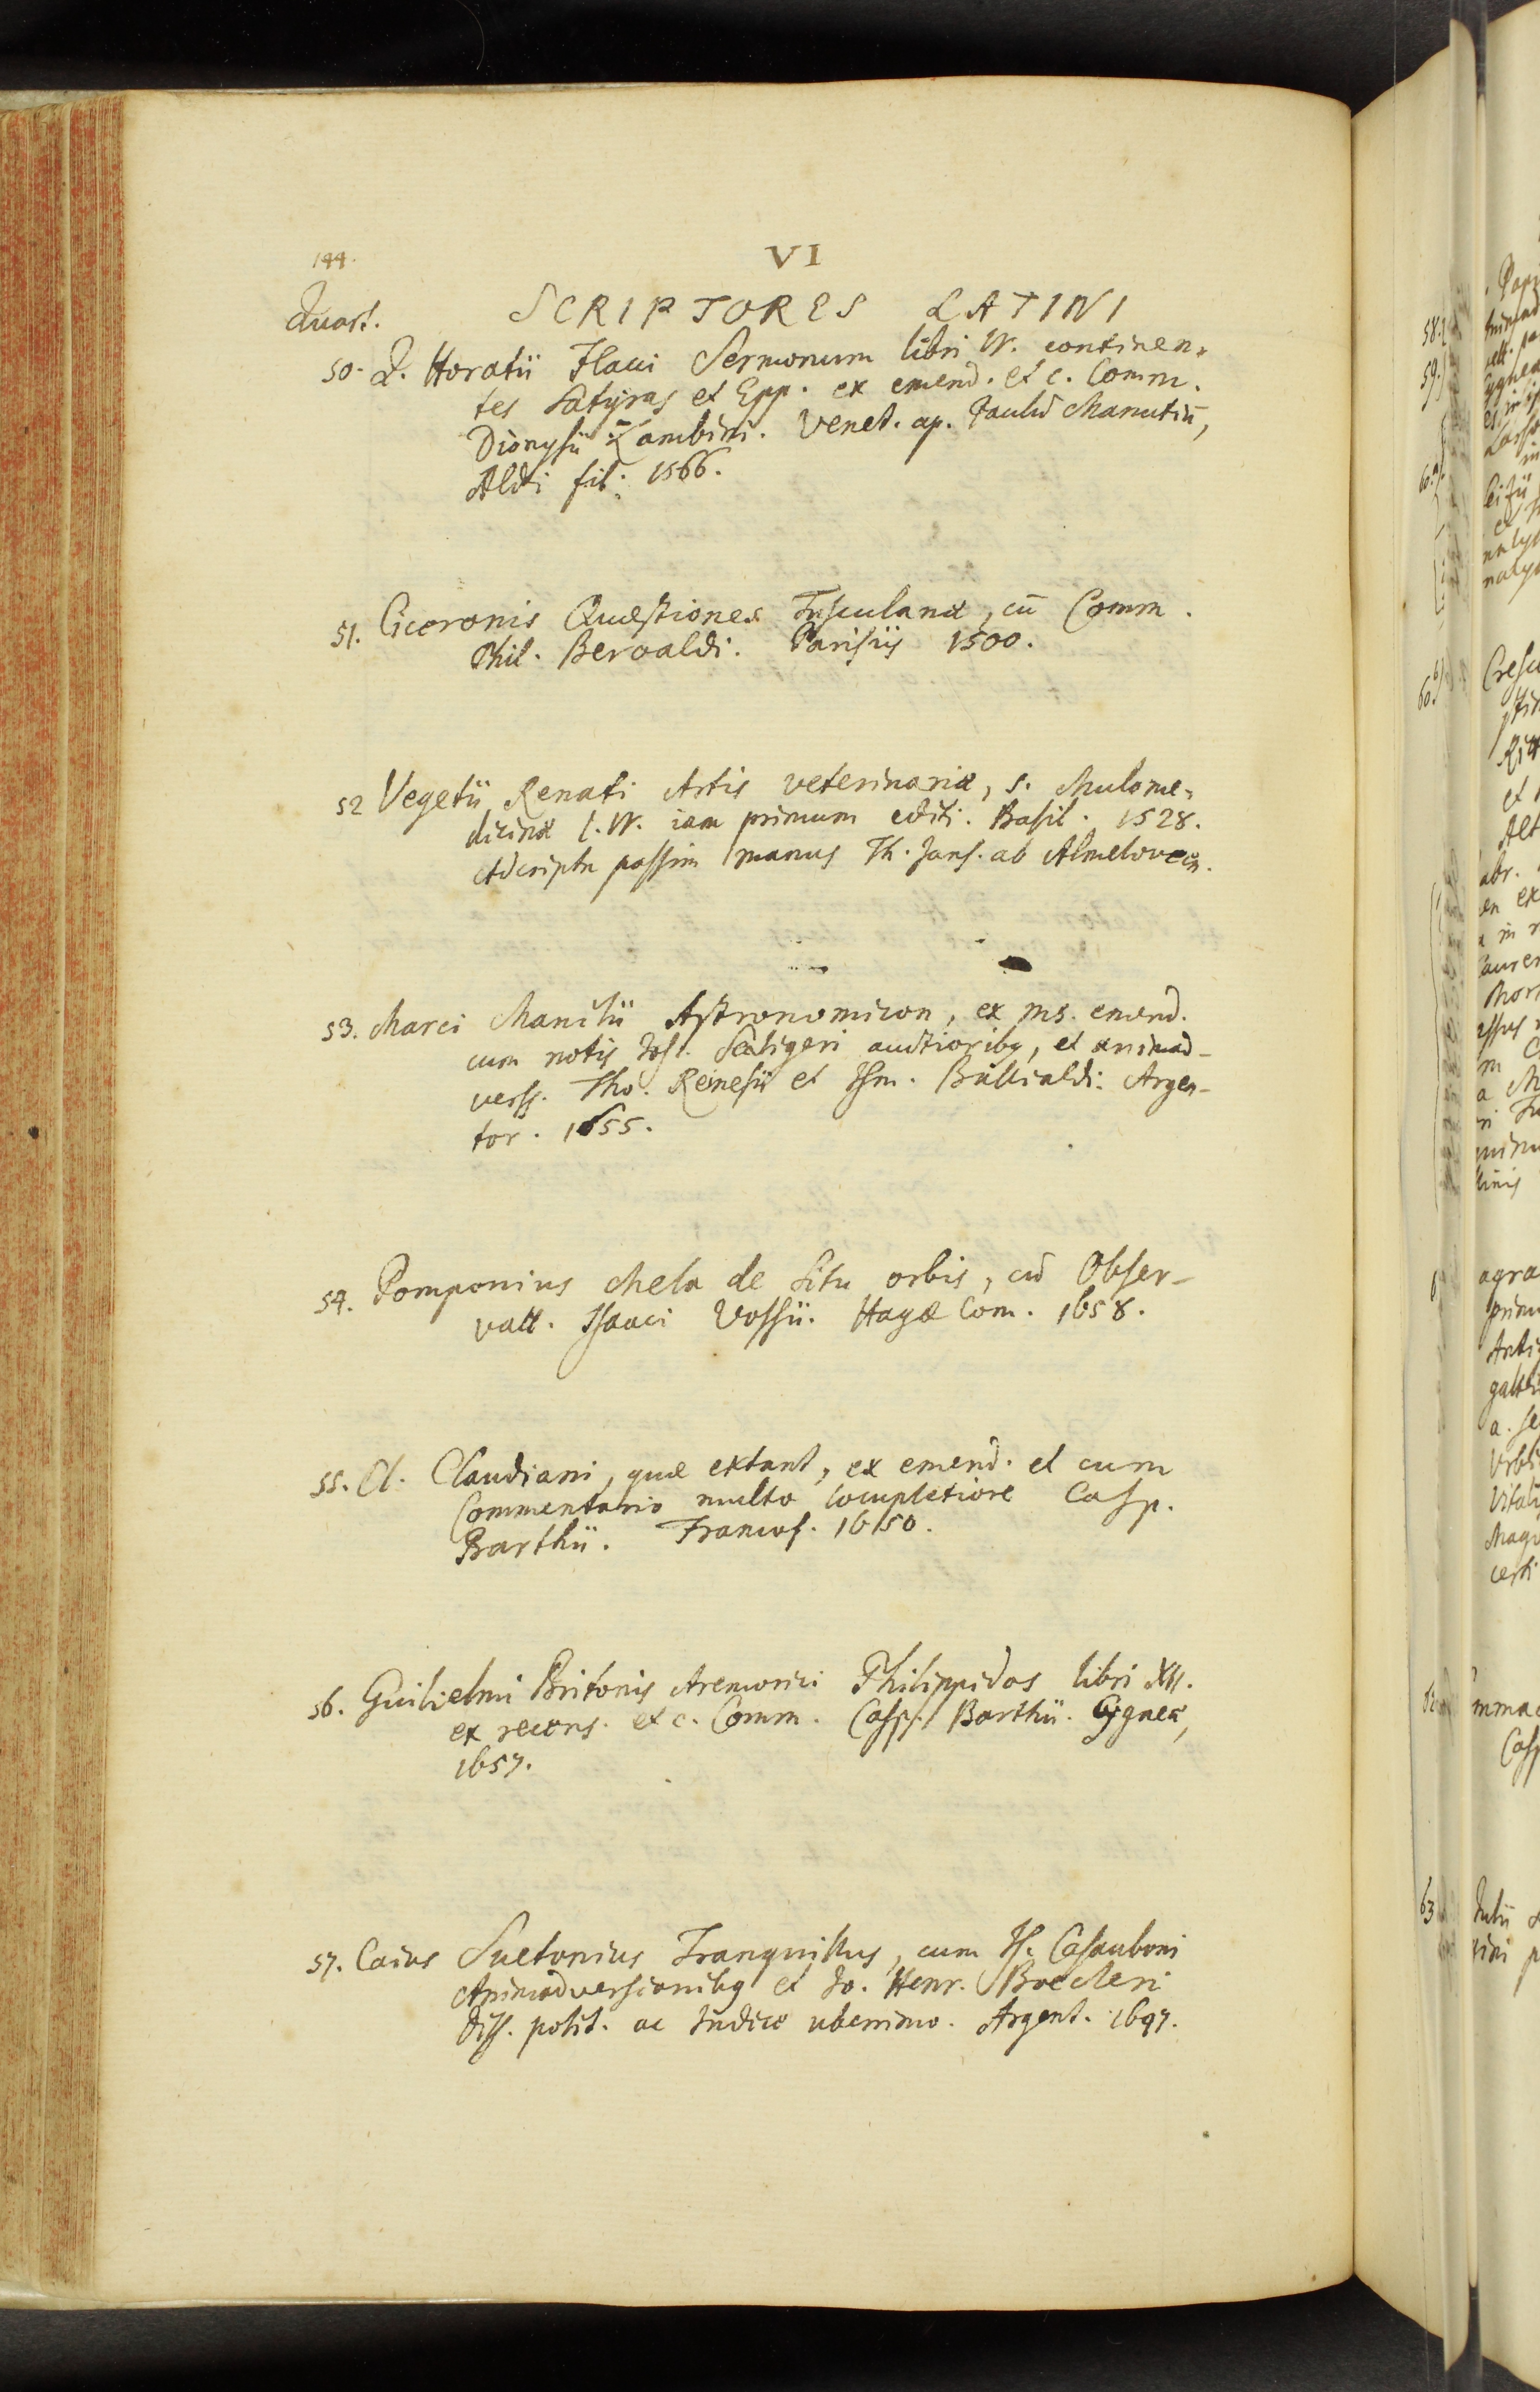 144.
VI
Quart.
SCRIPTORES LATINI
50. Q. Horatii Flacci Sermonum libri IV. continen-
tes Satyras et Epp. ex emend. et c. Comm.
Dionysii Lambini. Venet. ap. Paulū Manutiū,
Aldi fil. 1566.
51. Ciceronis Quæstiones Tusculanæ, cū Comm.
Phil. Beroaldi. Parisiis 1500.
52 Vegetii Renati Artis veterinariæ, s. Mulome-
dicinæ l. IV. iam primum editi. Basil. 1528.
Adscripta passim manus Th. Jans. ab Almeloveen.
53. Marci Manilii Astronomicon, ex ms. emend.
cum notis Jos. Scaligeri auctioribq, et animad-
verss. Tho. Reinesii et Ism. Bullialdi. Argen-
tor. 1655.
54. Pomponius Mela de Situ orbis, cū Obser-
vatt. Isaaci Vossii. Hagæ Com. 1658.
55. Cl. Claudiani, quæ extant, ex emend. et cum
Commentario multo locupletiore Casp.
Barthii. Francof. 1650.
56. Guilielmi Britonis Aremorici Philippidos libri XII.
ex recens. et c. Comm. Casp. Barthii. Cygneæ,
1657.
57. Caius Suetonius Tranquillus, cum Is. Casauboni
Animadversionibq et Jo. Henr. Boecleri
Diss. polit. ac Indice uberrimo. Argent. 1647.
58.
59.
60.
63